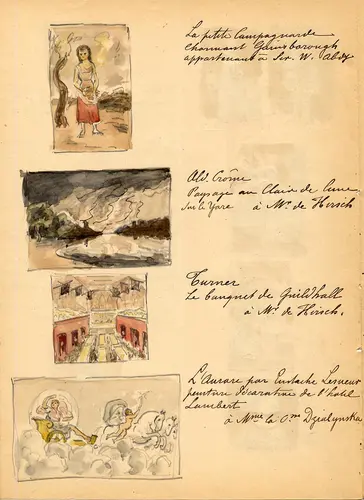 La petite Campagnarde
charmant Gainsborough
appartenant à Sir. W. Abdy
Old. Crôme
Paysage au Clair de Lune
sur l'Yare à Mr. de Hirsch
Turner
Le banquet de Guildhall
à Mr. de Hirsch.
L'Aurore par Eustache Lesueur
peinture décorative de l'hotel
Lambert
à Mme la Csse Dzialynska